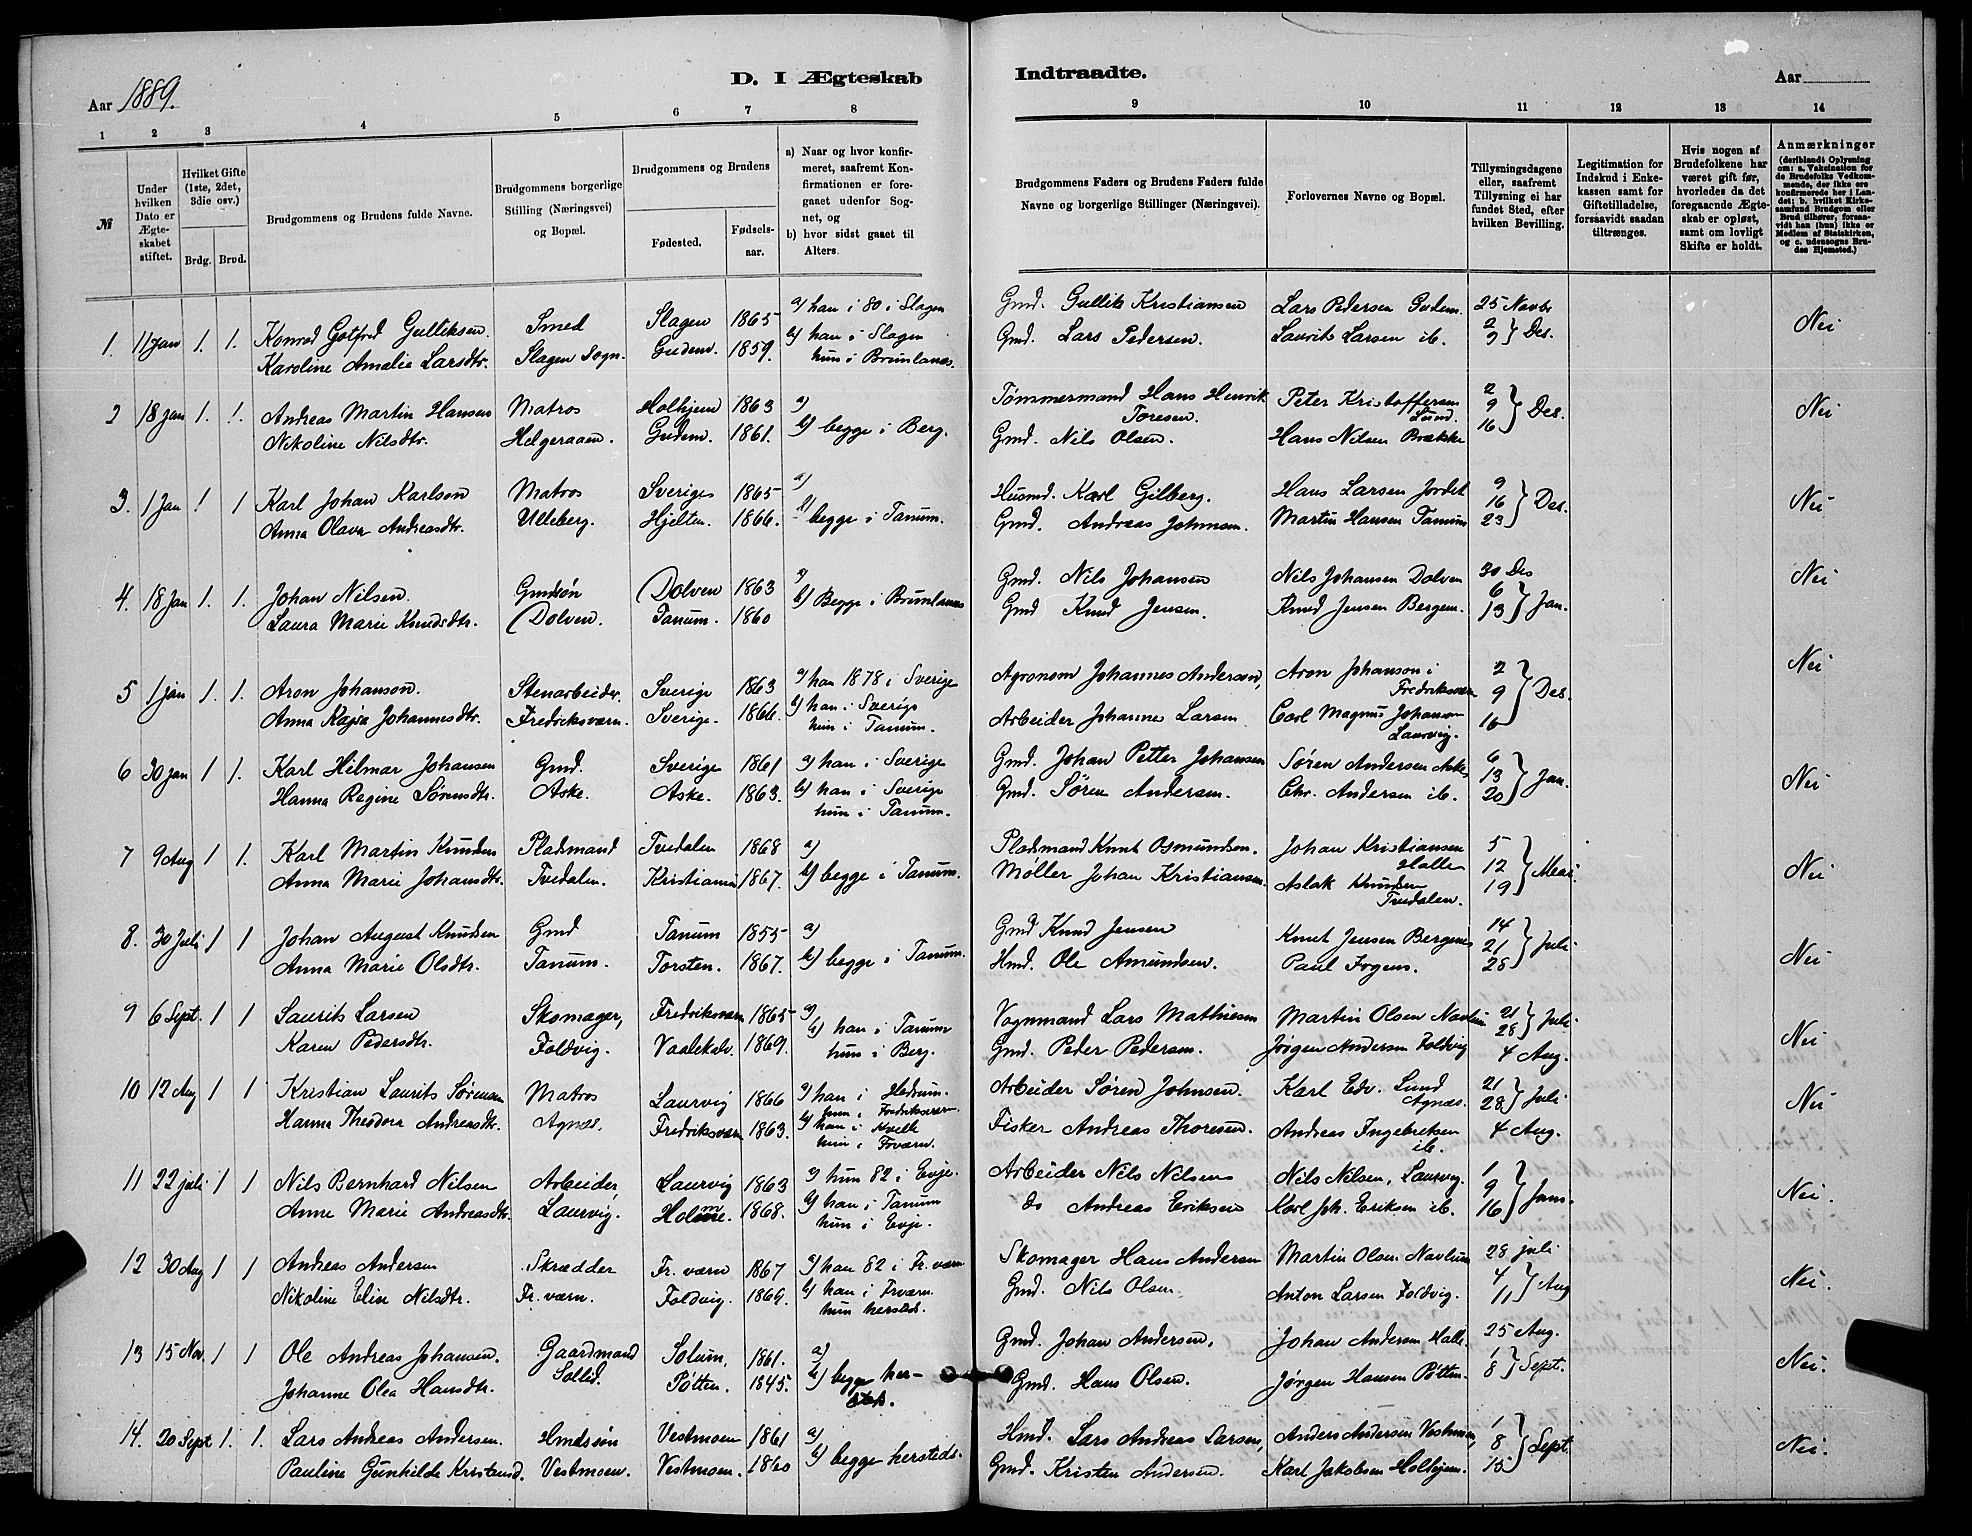 Aar 1889.
D. I Ægteskab
Indtraadte.
Aar
1 2 3 4 5 6 7 8 9 10 11 12 13 14
№
Under hvilken Dato er Ægteskabet stiftet.
Hvilket Gifte (1ste, 2det, 3die osv.)
Brdg. Brud.
Brudgommens og Brudens fulde Navne.
Brudgommens borgerlige Stilling (Næringsvei) og Bopæl.
Brudgommens og Brudens
Fødested.
Fødselsaar.
a) Naar og hvor konfirmeret, saafremt Konfirmationen er foregaaet udenfor Sognet, og
b) hvor sidst gaaet til Alters.
Brudgommens Faders og Brudens Faders fulde Navne og borgerlige Stillinger (Næringsvei).
Forlovernes Navne og Bopæl.
Tillysningsdagene eller, saafremt Tillysning ei har fundet Sted, efter hvilken Bevilling.
Legitimation for Indskud i Enkekassen samt for Giftetilladelse, forsaavidt saadan tiltrænges.
Hvis nogen af Brudefolkene har været gift før, hvorledes da det foregaaende Ægteskab er opløst, samt om lovligt Skifte er holdt.
Anmærkninger
(deriblandt Oplysning om: a. Vakcination for de Brudefolks Vedkommende, der ikke ere konfirmerede her i Landet; b. hvilket Kirkesamfund Brudgom eller Brud tilhører, forsaavidt han (hun) ikke er Medlem af Statskirken, og c. udensogns Brudes Hjemsted.)
1. 11 Jan 1. 1. Konrad Gotfred Gulliksen Smed Slagen 1865 a) han i 80 i Slagen Gmd. Gullik Kristiansen Lars Pedersen Gudem. 25 Novbr
Karoline Amalie Larsdtr. Slagen Sogn. Gudem. 1859. b) han i Slagen hun i Brunlanæs. Gmd. Lars Pedersen. Laurits Larsen ib. 2 9 } Des. Nei
2 18 Jan 1. 1. Andreas Martin Hansen Matros Holhjem 1863 a) Tømmermand Hans Henrik Toresen. Peter Kristoffersen Lund. 2 9 16 } Des. Nei
Nikoline Nilsdtr. Helgeraaen. Gudem. 1861. b) begge i Berg. Gmd. Nils Olsen. Hans Nilsen Brække
3. 1 Jan 1 1 Karl Johan Karlson Matros Sverige 1865 a) Husmd. Karl Gilberg. Hans Larsen Jordet 9 16 23 } Des. Nei
Anna Olava Andreasdtr. Ulleberg. Hjelten. 1866. b) begge i Tanum. Gmd. Andreas Johnsen. Martin Hansen Tanum
4. 18 Jan 1. 1. Johan Nilsen. Gmdsøn Dolven 1863 a) Gmd. Nils Johansen Nils Johansen Dolven 30 Des Nei
Laura Marie Knudsdtr. Dolven. Tanum. 1860 b) Begge i Brunlanæs Gmd Knud Jensen. Knud Jensen Bergen. 6 13 } Jan.
5 1 jan 1. 1. Aron Johanson. Stenarbeider. Sverige 1863 a) han 1878 i Sverige Agronom Johannes Andersen, Aron Johanson i Fredriksværn 2 9 16 } Des. Nei
Anna Kajsa Johannesdtr. Fredriksværn. Sverige. 1866. b) han i Sverige hun i Tanum. Arbeider Johannes Larsen Carl Magnus Johanson Laurvig.
6 30 jan 1 1. Karl Hilmar Johansen Gmd. Sverige 1861 a) han i Sverige Gmd. Johan Petter Johansen Søren Andersen Aske, 6 13 20 } Jan. Nei
Hanna Regine Sørensdtr. Aske. Aske. 1863. b) han i Sverige hun i Tanum. Gmd. Søren Andersen. Chr. Andersen ib.
7 9 Aug 1 1. Karl Martin Knudsen Pladsmand Tvedalen 1868 a) Pladsmand Knut Osmundsen. Johan Kristiansen Halle 5 12 19 } Mai. Nei
Anna Marie Johansdtr. Tvedalen. Kristiania 1867. b) begge i Tanum. Møller Johan Kristiansen. Aslak Knudsen Tvedalen.
8. 30 Juli 1 1 Johan August Knudsen Gmd Tanum 1855 a) Gmd Knud Jensen Knut Jensen Bergene 14 21 28 } Juli Nei
Anna Marie Olsdtr. Tanum. Torsten. 1867. b) begge i Tanum. Hmd. Ole Amundsen. Paul Fogens.
9 6 Sept. 1 1 Laurits Larsen Skomager, Fredriksværn 1865 a) Vognmand Lars Mathiesen Martin Olsen Navlum 21 28 } Juli Nei
Karen Pedersdtr. Foldvig. Vaalekalv. 1869. b) han i Tanum hun i Berg. Gmd. Peder Pedersen. Jørgen Andersen Foldvig 4 Aug.
10 12 Aug 1 1 Kristian Laurits Sørensen Matros Laurvig 1866 a) han i Hedrum. hun i Fredriksværn Arbeider Søren Johnsen. Karl Edv. Lund Agnæs. 21 28 } Juli Nei
Hanna Theodora Andreasdtr. Agnæs. Fredriksværn 1863. b) han i Kvelle hun i Frværn. Fisker Andreas Thoresen. Andreas Ingebretsen ib. 4 Aug.
11 22 juli 1 1 Nils Bernhard Nilsen Arbeider, Laurvig 1863 a) hun 82 i Evje. Arbeider Nils Nilsen Nils Nilsen, Laurvig. 1 9 16 } Juni. Nei.
Anne Marie Andreasdtr. Laurvig. Holme. 1868. b) han i Tanum hun i Evje. do Andreas Eriksen Karl Joh. Eriksen ib.
12 30 Aug 1 1 Andreas Andersen Skrædder Fr. værn 1867 a) han 82 i Fr. værn Skomager Hans Andersen Martin Olsen Navlum 28 juli Nei.
Nikoline Elise Nilsdtr. Fr. værn. Foldvig. 1869. b) han i Frværn. hun hersteds. Gmd. Nils Olsen. Anton Larsen Foldvig. 4 11 } Aug
13 15 Nov. 1 1 Ole Andreas Johansen. Gaardmand Solum, 1861. a) Gmd. Johan Andersen. Johan Andersen Halle 25 Aug. Nei.
Johanne Olea Hansdtr. Sollid. Pøtten. 1845. b) begge hersteds. Gmd. Hans Olsen. Jørgen Hansen Pøtten 1 8 } Sept.
14. 20 Sept 1. 1. Lars Andreas Andersen. Hmdssøn Vestmoen 1861 a) Hmd. Lars Andreas Larsen, Anders Andersen Vestmoen, 1 8 15 } Sept. Nei.
Pauline Gunhilde Kristensd. Vestmoen. Vestmoen. 1860 b) begge hersteds. Gmd. Kristen Andersen. Karl Jakobsen Holhjem.